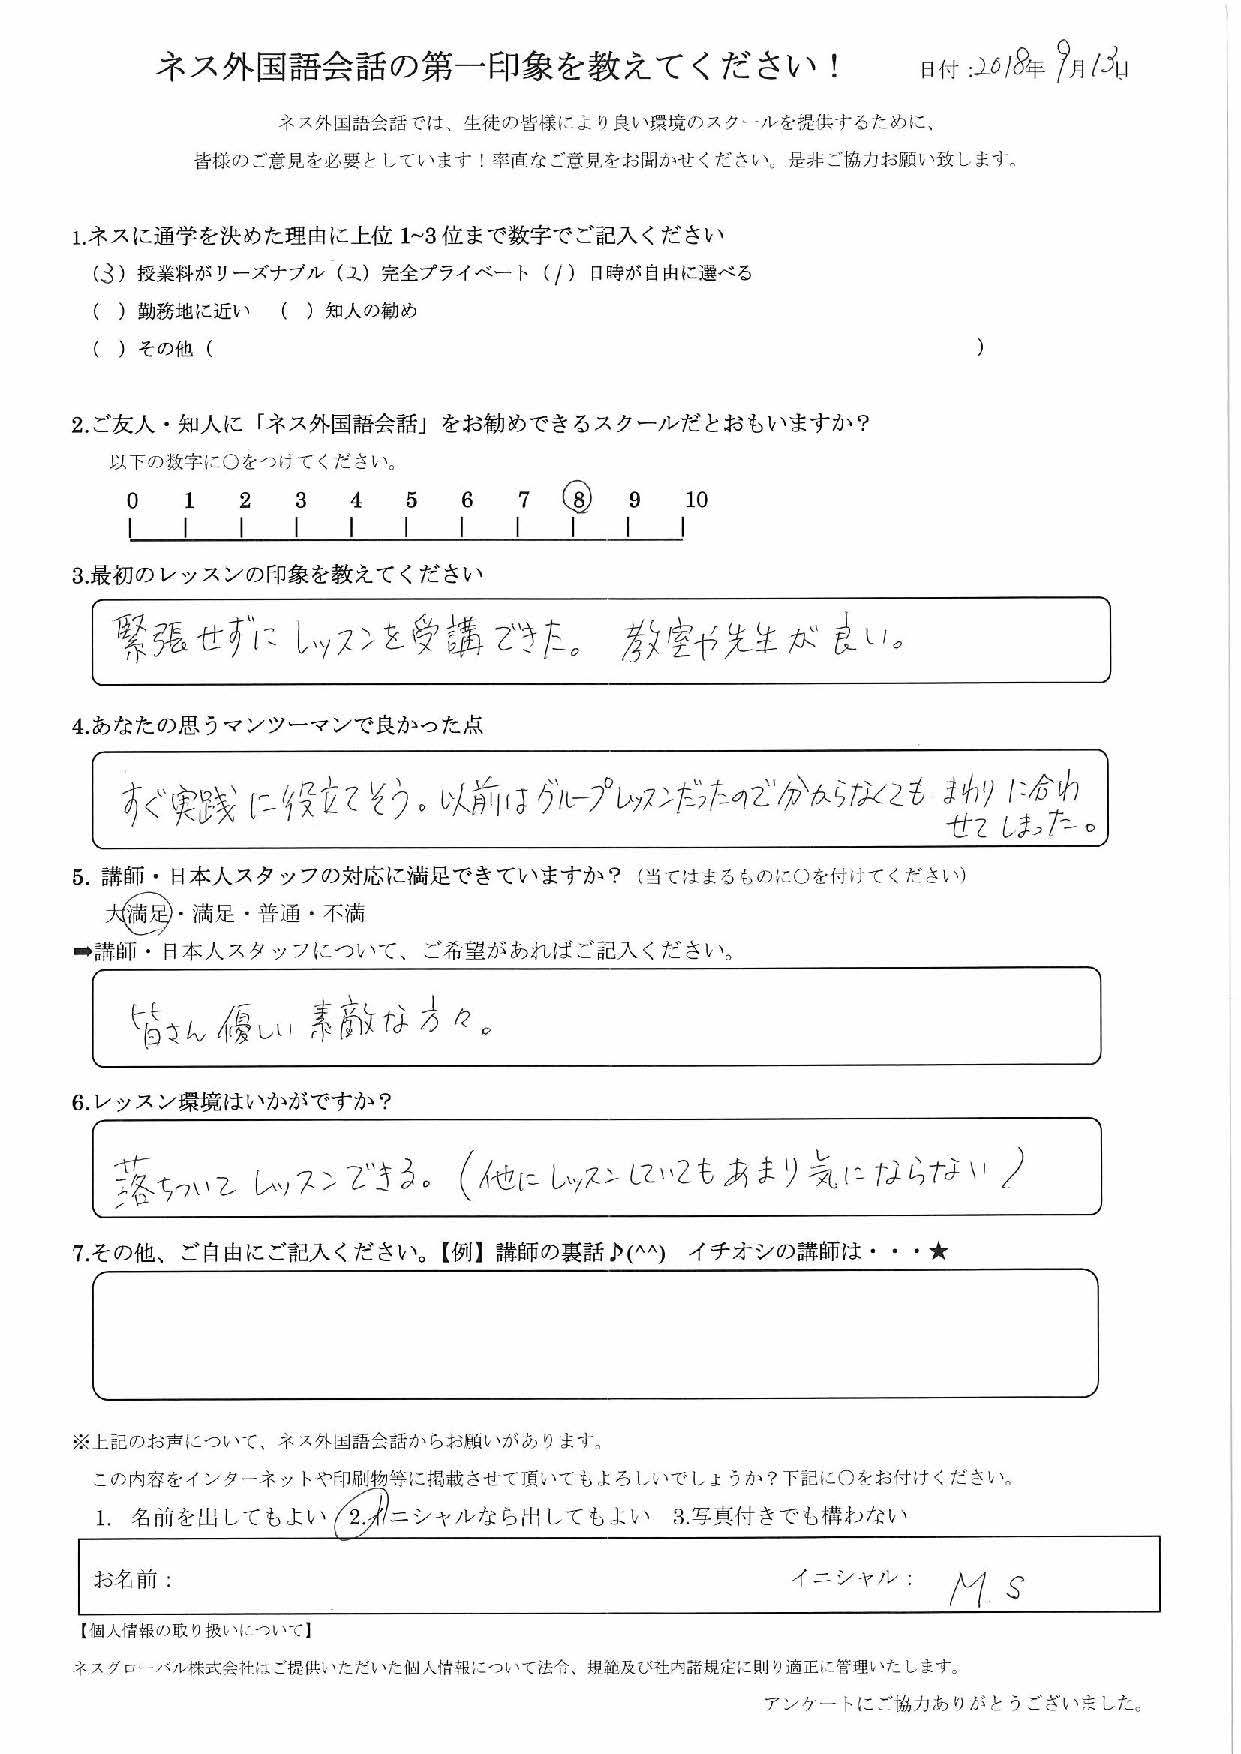 ネス外国語会話の第一印象を教えてください！ 日付：2018年9月13日
ネス外国語会話では、生徒の皆様により良い環境のスクールを提供するために、
皆様のご意見を必要としています！率直なご意見をお聞かせください。是非ご協力お願い致します。
1.ネスに通学を決めた理由に上位1~3位まで数字でご記入ください
（3）授業料がリーズナブル（2）完全プライベート（1）日時が自由に選べる
（ ）勤務地に近い （ ）知人の勧め
（ ）その他（ ）
2.ご友人・知人に「ネス外国語会話」をお勧めできるスクールだとおもいますか？
以下の数字に〇をつけてください。
0 1 2 3 4 5 6 7 8 9 10
3.最初のレッスンの印象を教えてください
緊張せずにレッスンを受講できた。 教室や先生が良い。
4.あなたの思うマンツーマンで良かった点
すぐ実践に役立てそう。以前はグループレッスンだったので分からなくてもまわりに合わ
せてしまった。
5. 講師・日本人スタッフの対応に満足できていますか？（当てはまるものに〇を付けてください）
大満足・満足・普通・不満
➡講師・日本人スタッフについて、ご希望があればご記入ください。
皆さん優しい素敵な方々。
6.レッスン環境はいかがですか？
落ちついてレッスンできる。（他にレッスンしていてもあまり気にならない）
7.その他、ご自由にご記入ください。【例】講師の裏話♪(^^) イチオシの講師は・・・★
※上記のお声について、ネス外国語会話からお願いがあります。
この内容をインターネットや印刷物等に掲載させて頂いてもよろしいでしょうか？下記に〇をお付けください。
1. 名前を出してもよい 2.イニシャルなら出してもよい 3.写真付きでも構わない
お名前： イニシャル： M.S
【個人情報の取り扱いについて】
ネスグローバル株式会社はご提供いただいた個人情報について法令、規範及び社内諸規定に則り適正に管理いたします。
アンケートにご協力ありがとうございました。